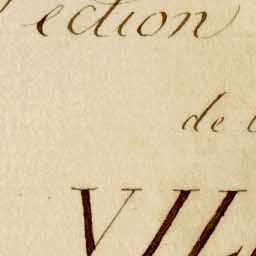 ection
de
VIL